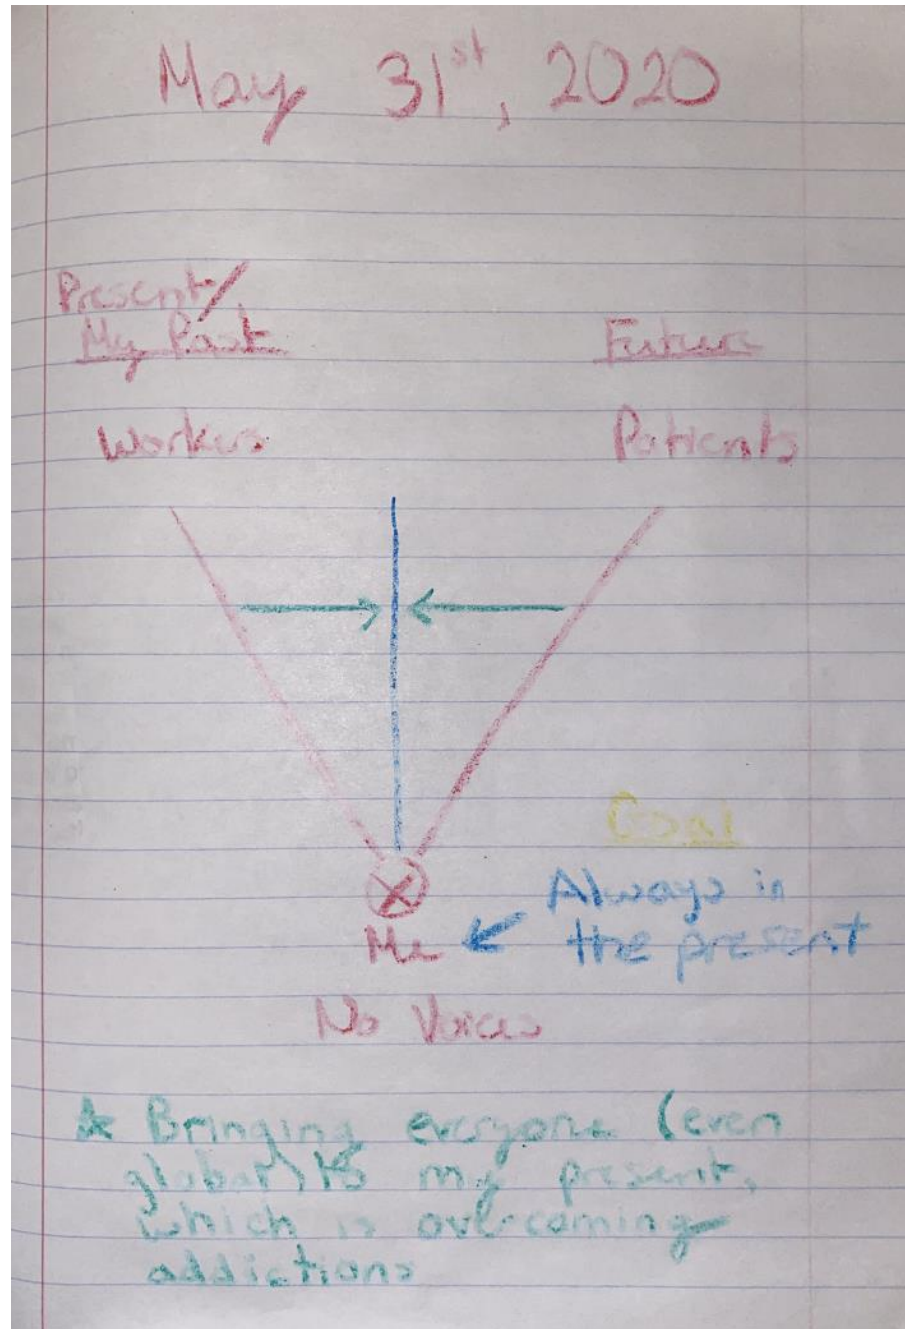 May 31st, 2020
Present/
My Past
Future
Workers
Patients
Goal
Always in
the present
Me
No Voices
* Bringing everyone (even
global) to my present,
which is overcoming
addictions